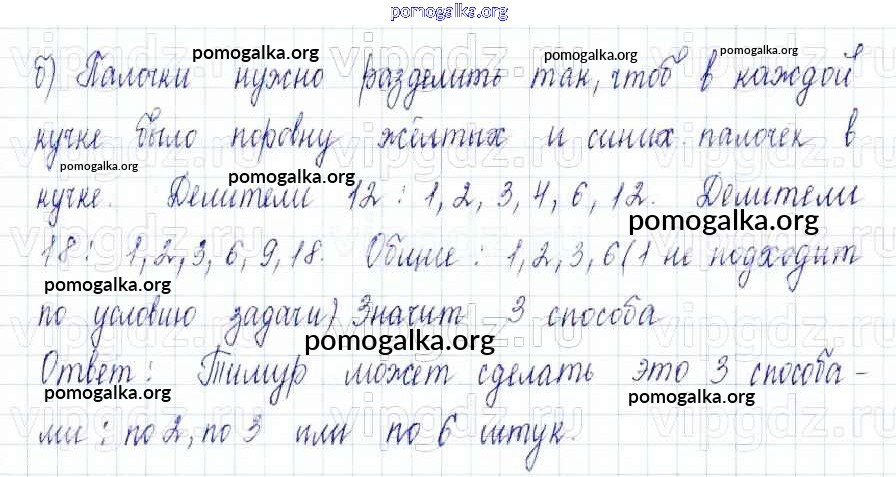 pomogalka.org
pomogalka.org pomogalka.org pomogalka.org
б) Палочки нужно разделить так, чтоб в каждой
кучке было поровну жёлтых и синих палочек в
pomogalka.org pomogalka.org pomogalka.org
кучке. Делители 12 : 1, 2, 3, 4, 6, 12. Делители
pomogalka.org
18: 1, 2, 3, 6, 9, 18. Общие : 1, 2, 3, 6 (1 не подходит
pomogalka.org pomogalka.org
по условию задачи) Значит 3 способа
pomogalka.org
Ответ: Тимур может сделать это 3 способа-
pomogalka.org pomogalka.org
ми : по 2, по 3 или по 6 штук.